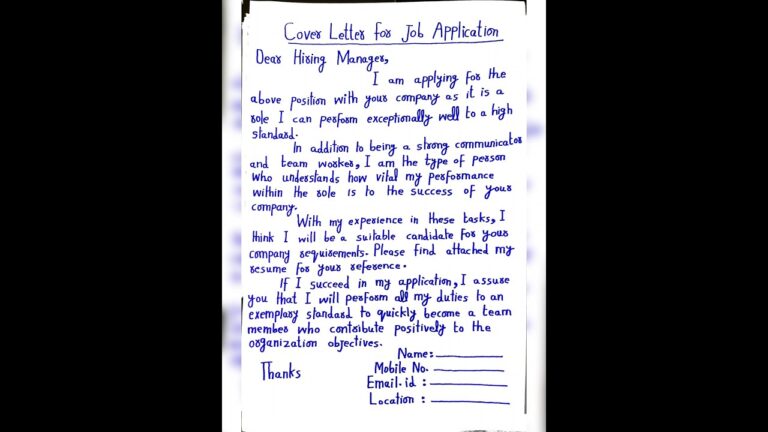 Cover Letter for Job Application
Dear Hiring Manager,
I am applying for the
above position with your company as it is a
role I can perform exceptionally well to a high
standard.
In addition to being a strong communicator
and team worker, I am the type of person
who understands how vital my performance
within the role is to the success of your
company.
With my experience in these tasks, I
think I will be a suitable candidate for your
company requirements. Please find attached my
resume for your reference.
If I succeed in my application, I assure
you that I will perform all my duties to an
exemplary standard to quickly become a team
member who contribute positively to the
organization objectives.
Name:
Thanks
Mobile No.
Email.id :
Location :